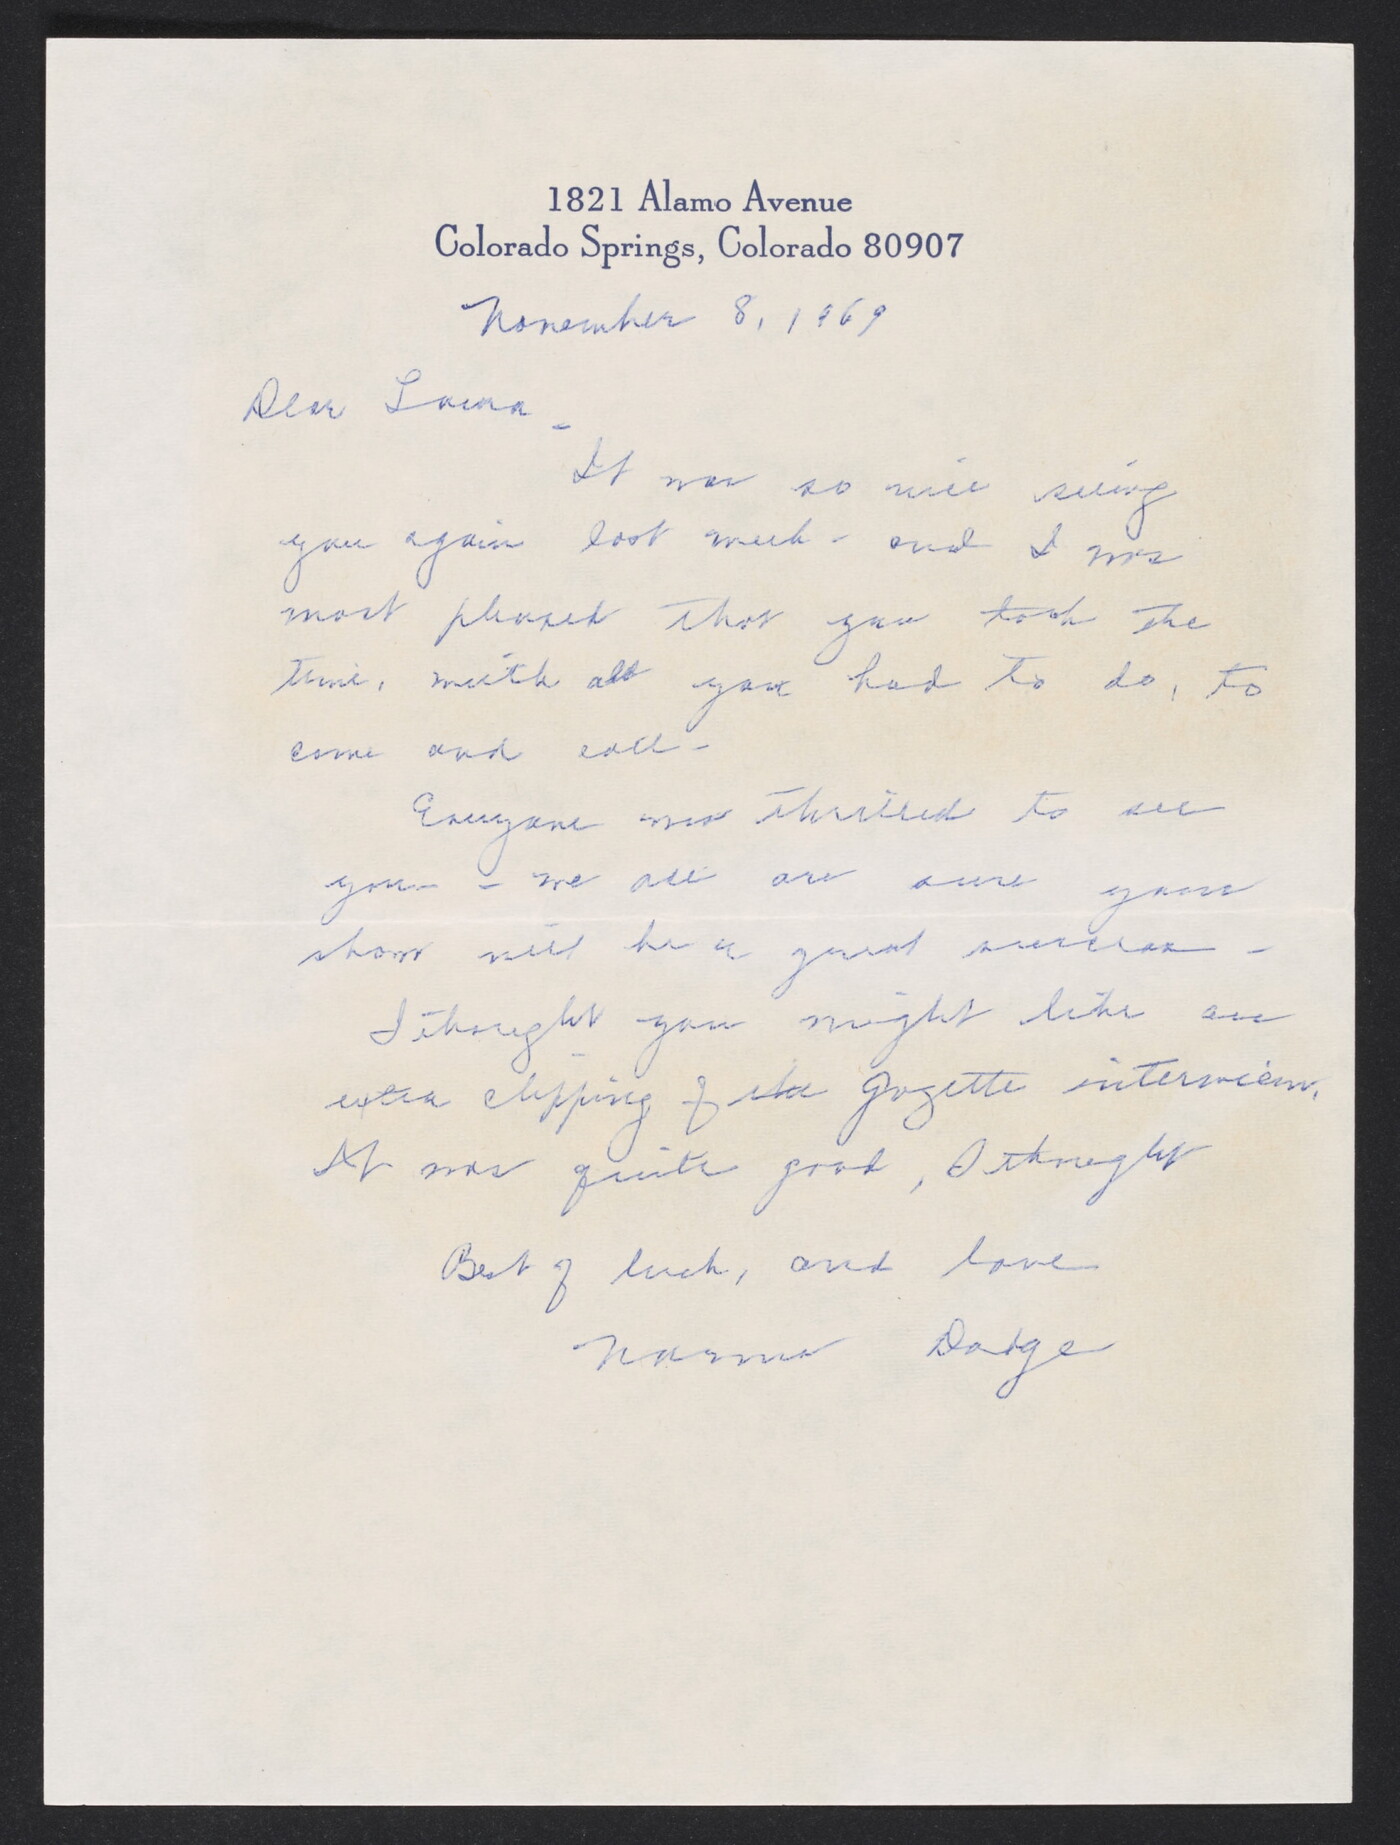 1821 Alamo Avenue
Colorado Springs, Colorado 80907
November 8, 1969
Dear Laura -
It was so nice seeing
you again last week - and I was
most pleased that you took the
time, with all you had to do, to
come and call -
Everyone was thrilled to see
you - we all are sure your
show will be a great success -
I thought you might like an
extra clipping of the Gazette interview.
It was quite good, I thought
Best of luck, and love
Norma Dodge